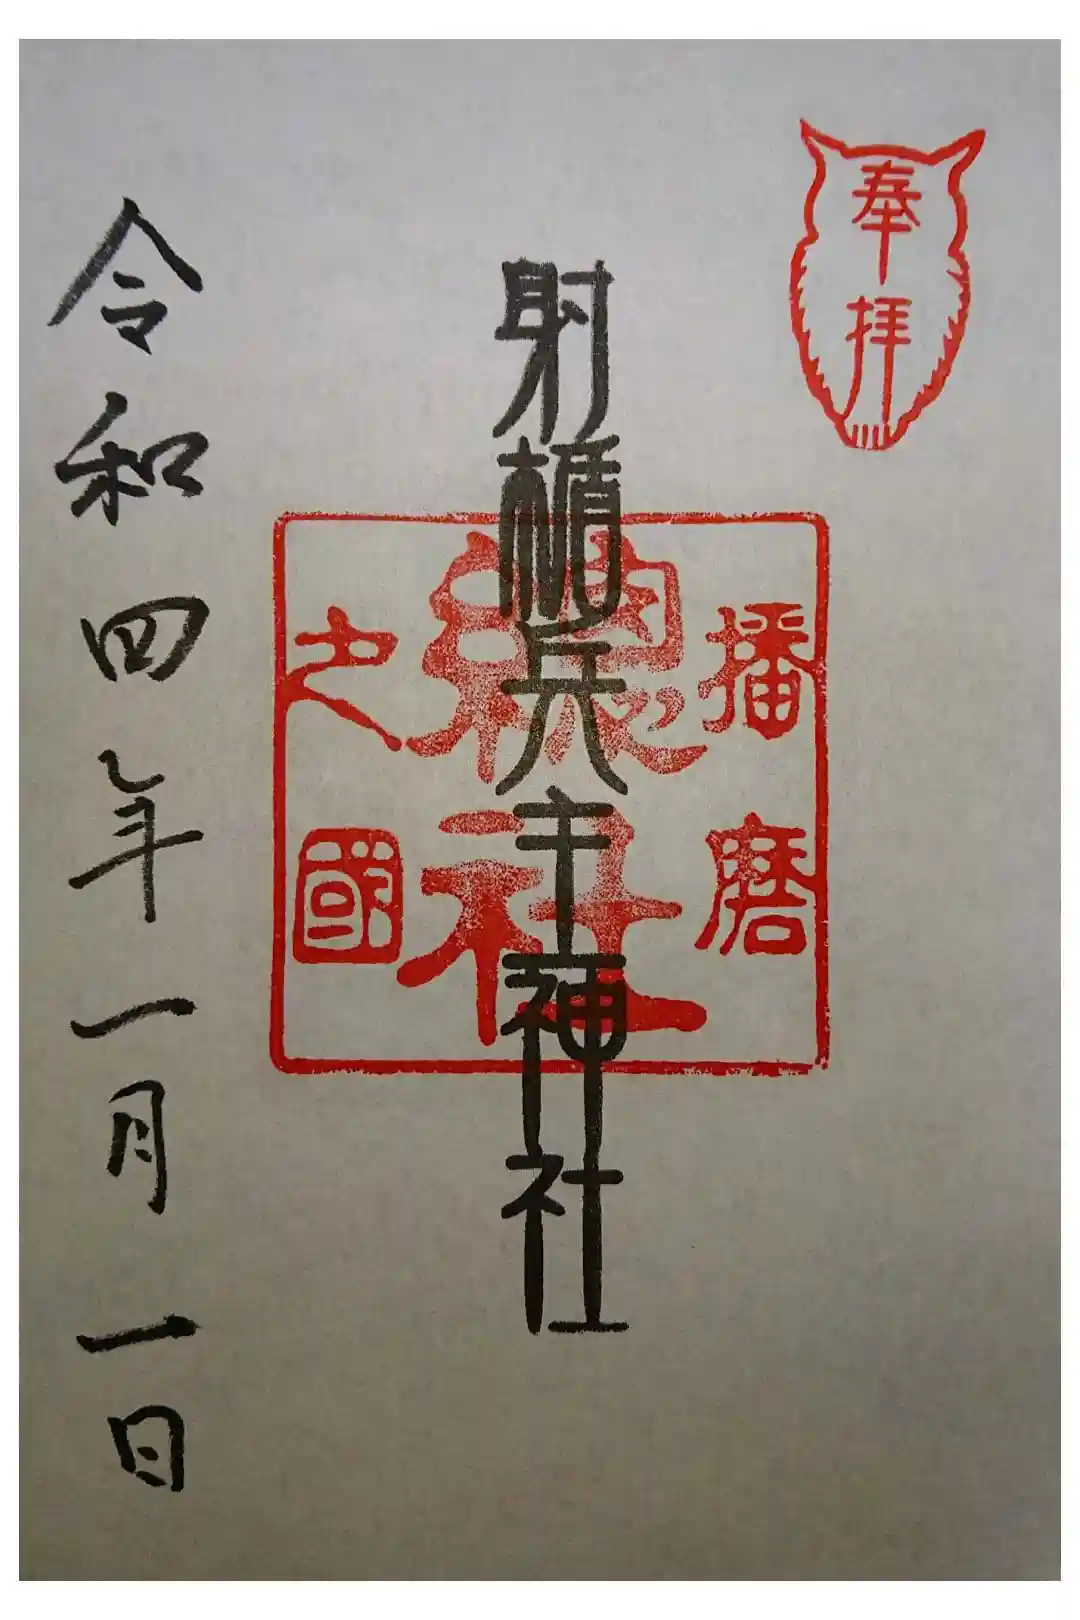 奉拝
射楯兵主神社
播磨
總社
之國
令和四年一月一日